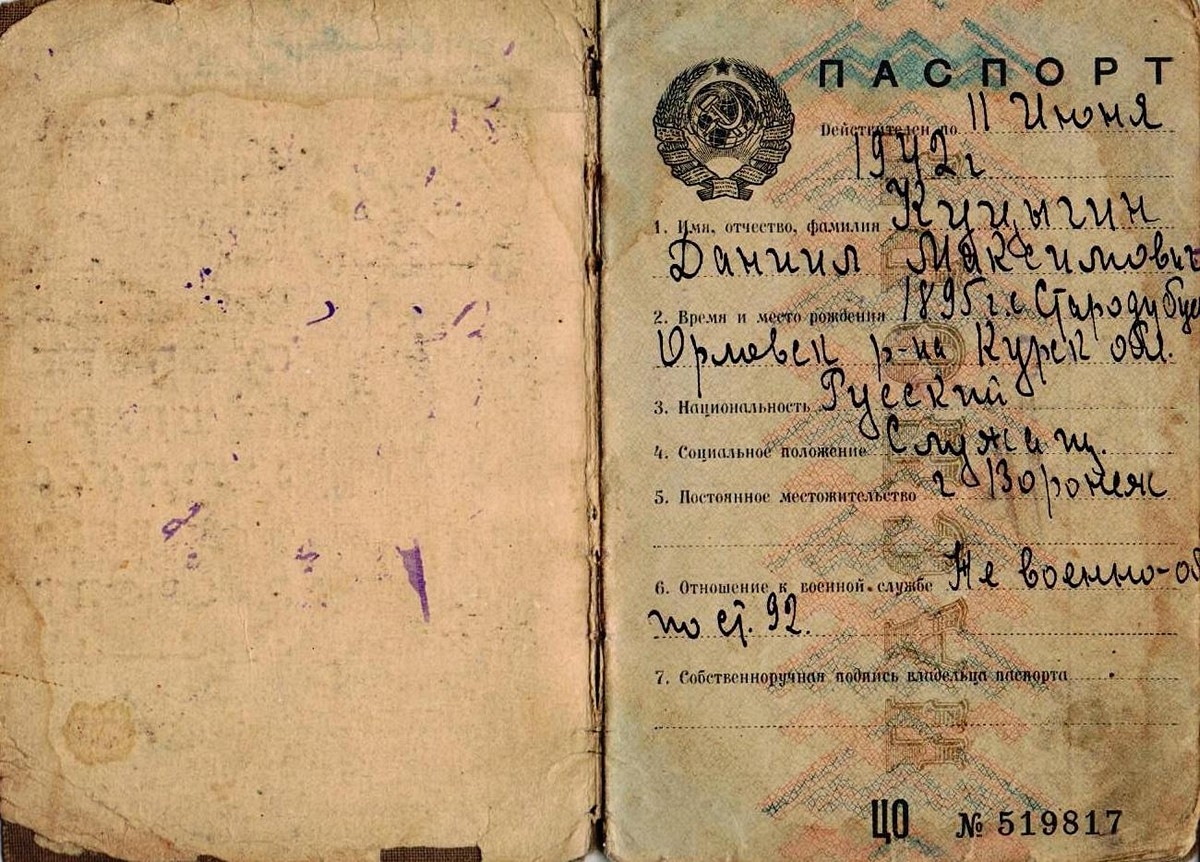 ПАСПОРТ
Действителен по 11 Июня
1942 г
1. Имя, отчество, фамилия Куцыгин
Даниил Максимович
2. Время и место рождения 1895 г. с. Стародуб
р-на Курск обл.
3. Национальность Русский
4. Социальное положение Служащ.
5. Постоянное местожительство г Воронеж
6. Отношение к военной службе Не военно-об
по ст. 92.
7. Собственноручная подпись владельца паспорта
ЦО № 519817
ПАСПОРТ